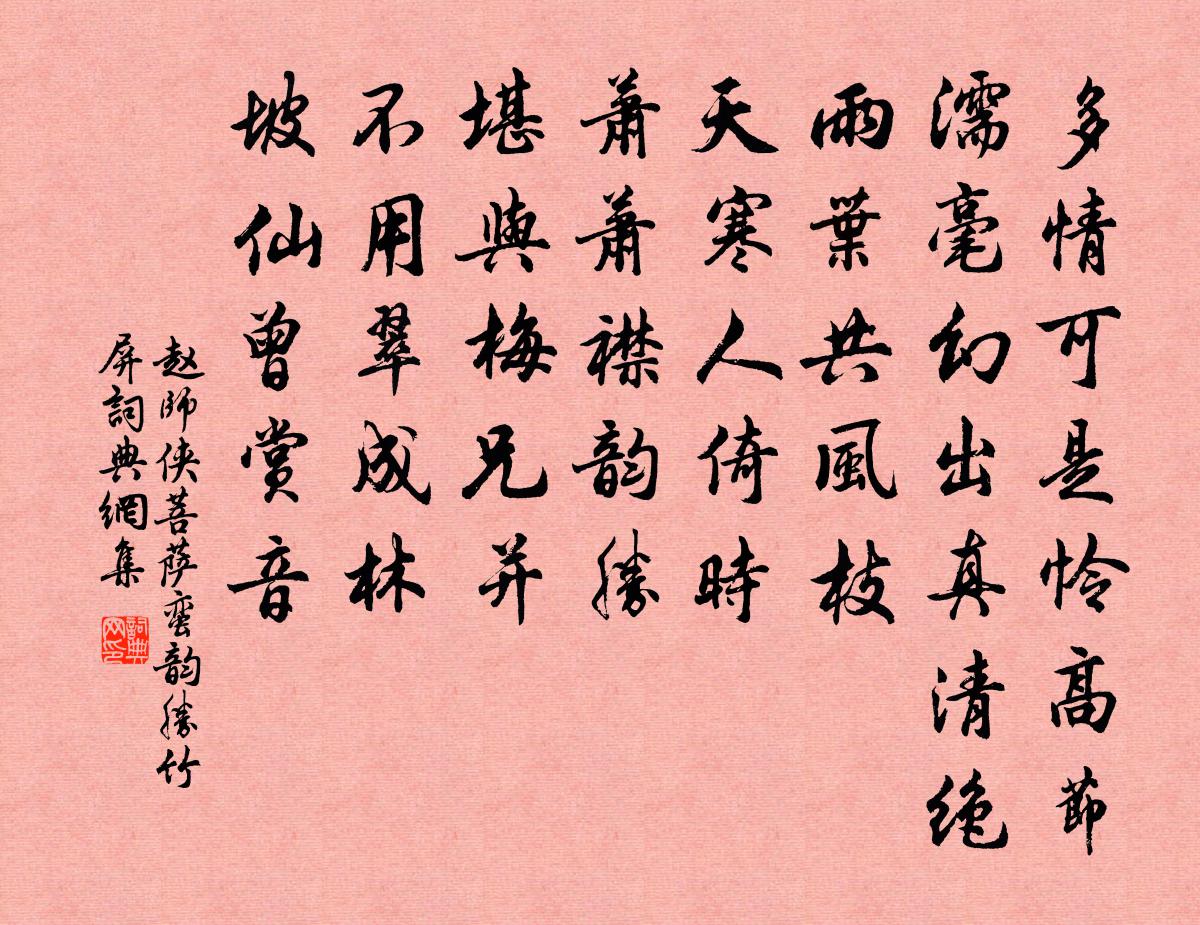 多情可是怜高節
濡毫幻出真清绝
雨葉共風枝
天寒人倚時
蕭蕭襟韵勝
堪與梅兄并
不用翠成林
坡仙曾赏音
赵師侠菩萨蛮韵勝竹
屏詞典網集
詞典网印